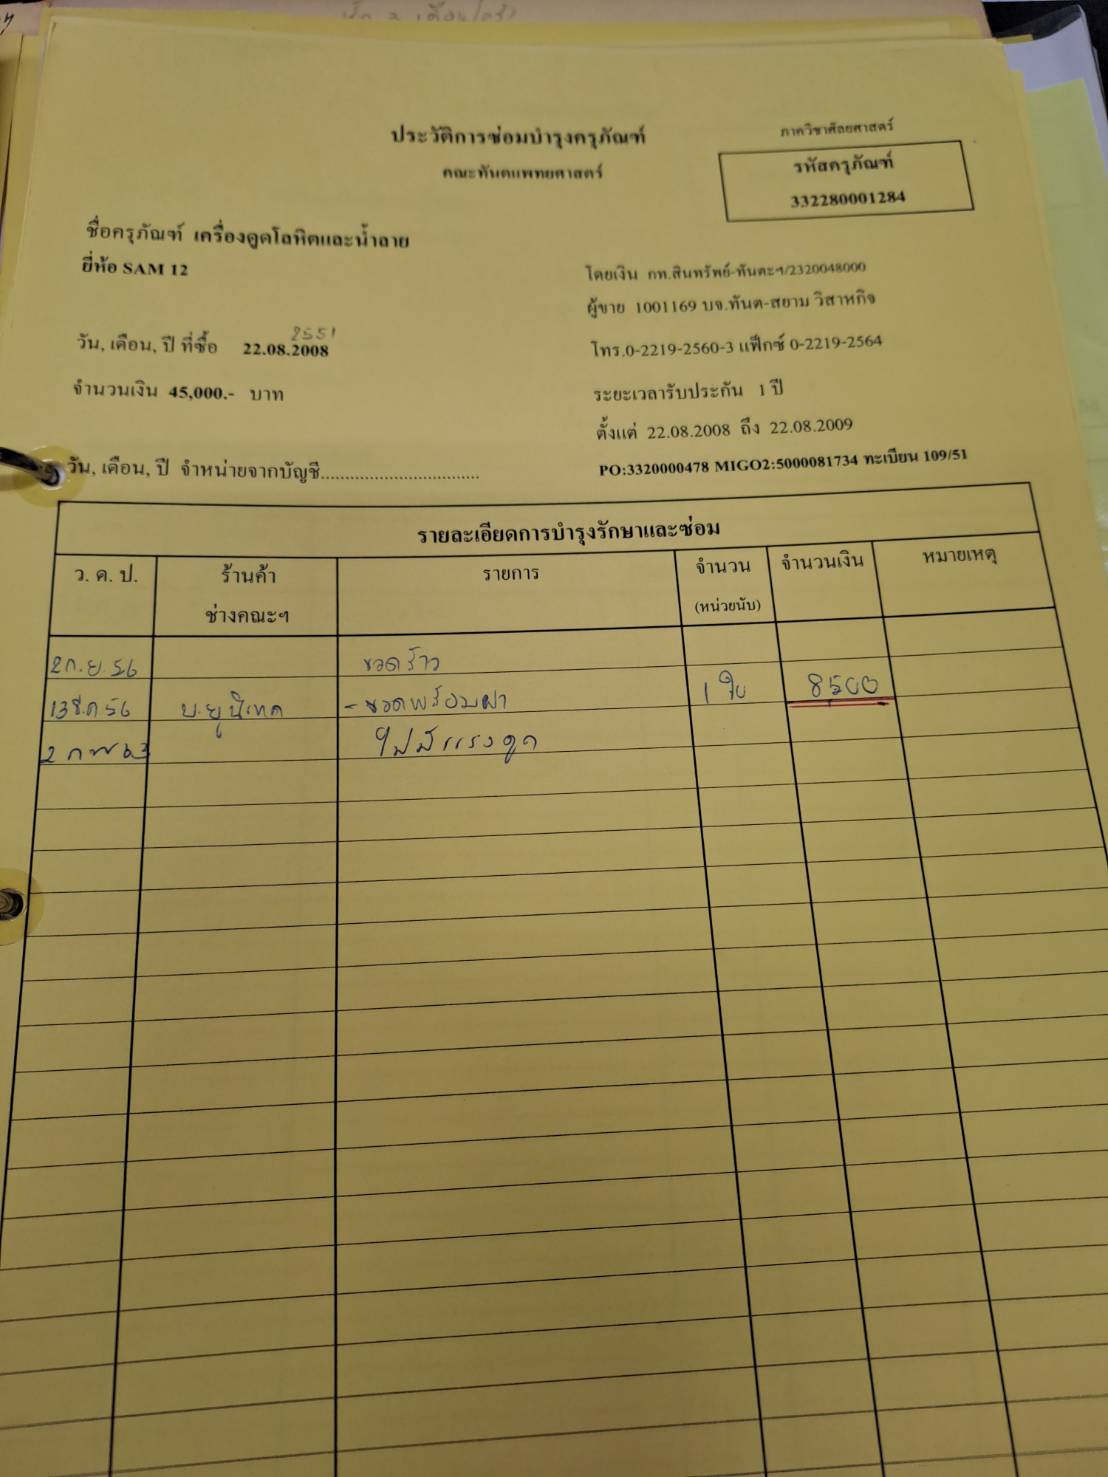 ประวัติการซ่อมบำรุงครุภัณฑ์
คณะทันตแพทยศาสตร์
ภาควิชาศัลยศาสตร์
รหัสครุภัณฑ์
332280001284
ชื่อครุภัณฑ์ เครื่องดูดโลหิตและน้ำลาย
ยี่ห้อ SAM 12
โดยเงิน กท.สินทรัพย์-ทันตะฯ/2320048000
ผู้ขาย 1001169 บจ.ทันต-สยาม วิสาหกิจ
2551
วัน, เดือน, ปี ที่ซื้อ 22.08.2008
โทร.0-2219-2560-3 แฟ็กซ์ 0-2219-2564
จำนวนเงิน 45,000.- บาท
ระยะเวลารับประกัน 1 ปี
ตั้งแต่ 22.08.2008 ถึง 22.08.2009
วัน, เดือน, ปี จำหน่ายจากบัญชี................................
PO:3320000478 MIGO2:5000081734 ทะเบียน 109/51
รายละเอียดการบำรุงรักษาและซ่อม
ว. ด. ป. ร้านค้า รายการ จำนวน จำนวนเงิน หมายเหตุ
ช่างคณะฯ (หน่วยนับ)
2 ก.ย. 56 ขวดร้าว
13 ธ.ค 56 บ.ยูนิเทค - ขวดพร้อมฝา 1 ใบ 8500
2 กพ 63 ไม่มีแรงดูด